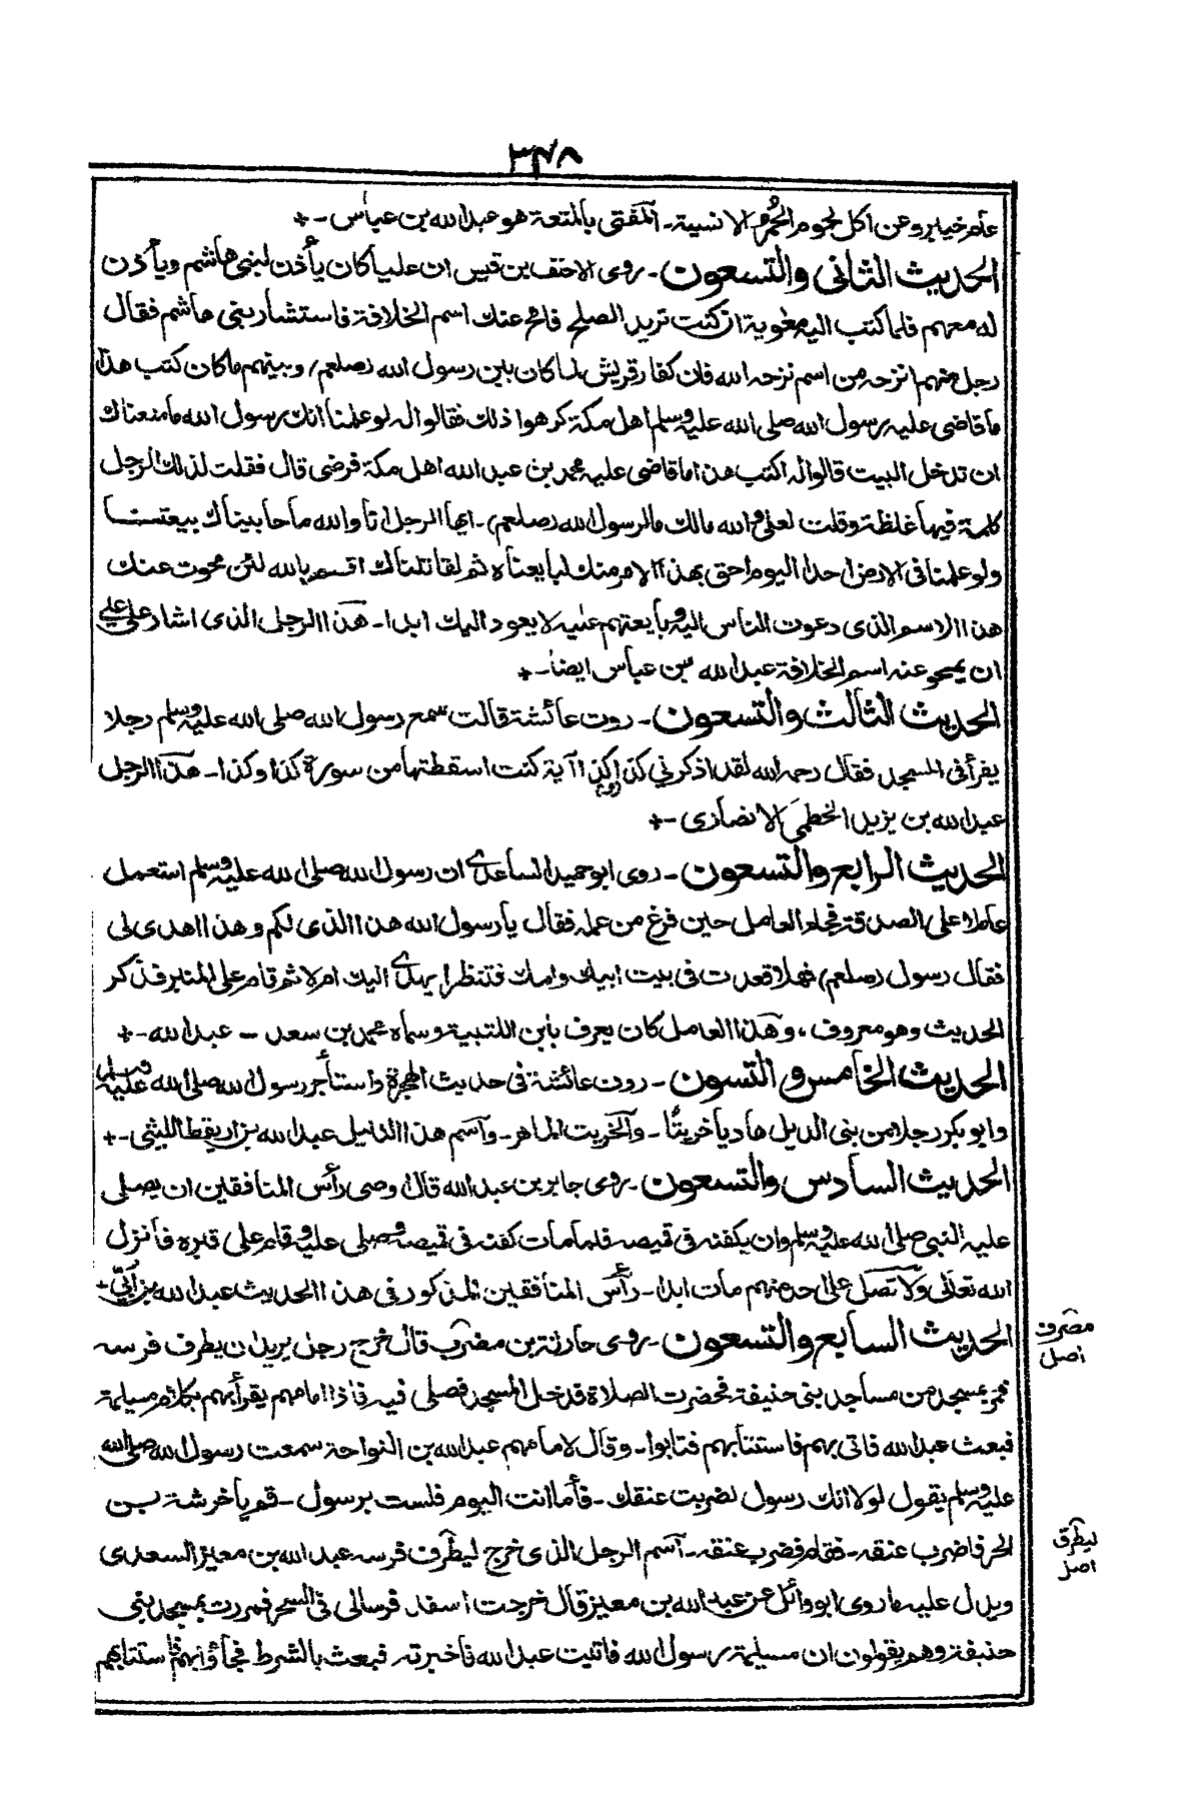 ٣٤٨
عام خيبر وعن اكل لحوم الحُمُر الانسية ـ آلمفتى بالمتعة هو عبد الله بن عباس ـ +
الحديث الثانى والتسعون ـ روى الاحنف بن قيس ان عليا كان يأذن لبنى هاشم ويأذن
له معهم فلما كتب اليه معٰوية ان كنت تريد الصلح فامح عنك اسم الخلافة فاستشار بنى هاشم فقال
رجل منهم انزحه من اسم نزحه الله فان كفار قريش لما كان بين رسول الله (صلعم) وبينهم ما كان كتب هذا
ما قاضى عليه رسول الله صلى الله عليه وسلم اهل مكة كرهوا ذلك فقالوا له لو علمنا انك رسول الله ما منعناك
ان تدخل البيت قالوا له اكتب هذا ما قاضى عليه محمد بن عبد الله اهل مكة فرضى قال فقلت لذلك الرجل
كلمة فيها غلظة وقلت لعلي والله مالك ما لرسول الله (صلعم) ـ ايها الرجل انا والله ما حابيناك ببيعتنا
ولو علمنا فى الارض احدا اليوم احق بهذا الامر منك لبايعناه ثم لقاتلناك اقسم بالله لئن محوت عنك
هذا الاسم الذى دعوت الناس اليه وبايعتهم عليه لا يعود اليك ابدا ـ هٓذا الرجل الذى اشار على علي
ان يمحو عنه اسم الخلافة عبد الله بن عباس ايضا ـ +
الحديث الثالث والتسعون ـ روت عائشة قالت سمع رسول الله صلى الله عليه وسلم رجلا
يقرأ فى المسجد فقال رحمه الله لقد اذكرني كذا وكذا آية كنت اسقطتها من سورة كذا وكذا ـ هٓذا الرجل
عبد الله بن يزيد الخطمى الانصارى ـ +
الحديث الرابع والتسعون ـ روى ابو حميد الساعدى ان رسول الله صلى الله عليه وسلم استعمل
عاملا على الصدقة فجاء العامل حين فرغ من عمله فقال يا رسول الله هذا الذى لكم وهذا اهدى لى
فقال رسول (صلعم) فهلا قعدت فى بيت ابيك وامك فتنظر ايهدى اليك ام لا ثم قام على المنبر فذكر
الحديث وهو معروف ، وهٓذا العامل كان يعرف بابن اللتبية وسماه محمد بن سعد ـ عبد الله ـ +
الحديث الخامس و التسون ـ روت عائشة فى حديث الهجرة واستأجر رسول الله صلى الله عليه وسلم
وابو بكر رجلا من بنى الديل هاديا خريتًا ـ وآلخريت الماهر ـ وآسم هذا الدليل عبد الله بن اريقط الليثى ـ +
الحديث السادس والتسعون ـ روى جابر بن عبد الله قال وصى رأس المنافقين ان يصلى
عليه النبى صلى الله عليه وسلم وان يكفنه فى قميصه فلما مات كفنه فى قميصه وصلى عليه وقام على قبره فانزل
الله تعالى ولا تصل على احد منهم مات ابدا ـ رأس المنافقين المذكور فى هذا الحديث عبد الله بن أُبَيّ +
الحديث السابع والتسعون ـ روى حارثة بن مضرب قال خرج رجل يريد ان يطرف فرسه
فمر بمسجد من مساجد بنى حنيفة فحضرت الصلاة فدخل المسجد فصلى فيه فاذا امامهم يقرأ بهم بكلام مسيلمة
فبعث عبد الله فاتى بهم فاستتابهم فتابوا ـ وقال لامامهم عبد الله بن النواحة سمعت رسول الله صلى الله
عليه وسلم يقول لولا انك رسول لضربت عنقك ـ فأما انت اليوم فلست برسول ـ قم يا خرشة بن
الحر فاضرب عنقه ـ فقام فضرب عنقه ـ آسم الرجل الذى خرج ليطرف فرسه عبد الله بن معيز السعدى
ويدل عليه ما روى ابو وائل عن عبد الله بن معيز قال خرجت اسفد فرسا لى فى السحر فمررت بمسجد بنى
حنيفة وهم يقولون ان مسيلمة رسول الله فاتيت عبد الله فاخبرته فبعث بالشرط فجاؤا بهم فاستتابهم
مضرف
اصل
ليطرق
اصل